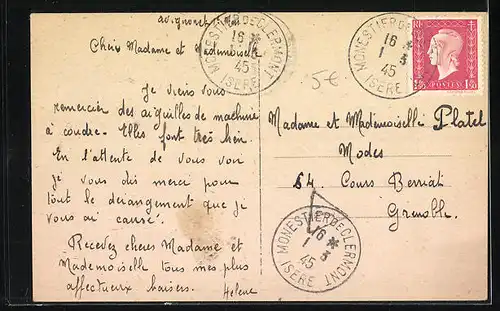 Avignonet
Chère Madame et Mademoiselle
Je viens vous
remercier des aiguilles de machine
à coudre. Elles font très bien.
En l'attente de vous voir
je vous dis merci pour
tout le derangement que je
vous ai causé.
Recevez chères Madame et
Mademoiselle tous mes plus
affectueux baisers.
Helene
MONESTIER DE CLERMONT
16 *
1 3
45
ISERE
MONESTIER DE CLERMONT
16 *
1 3
45
ISERE
POSTES
1F50
5€
Madame et Mademoiselle Platel
Modes
64. Cours Berriat
Grenoble.
MONESTIER DE CLERMONT
16 *
1 3
45
ISERE